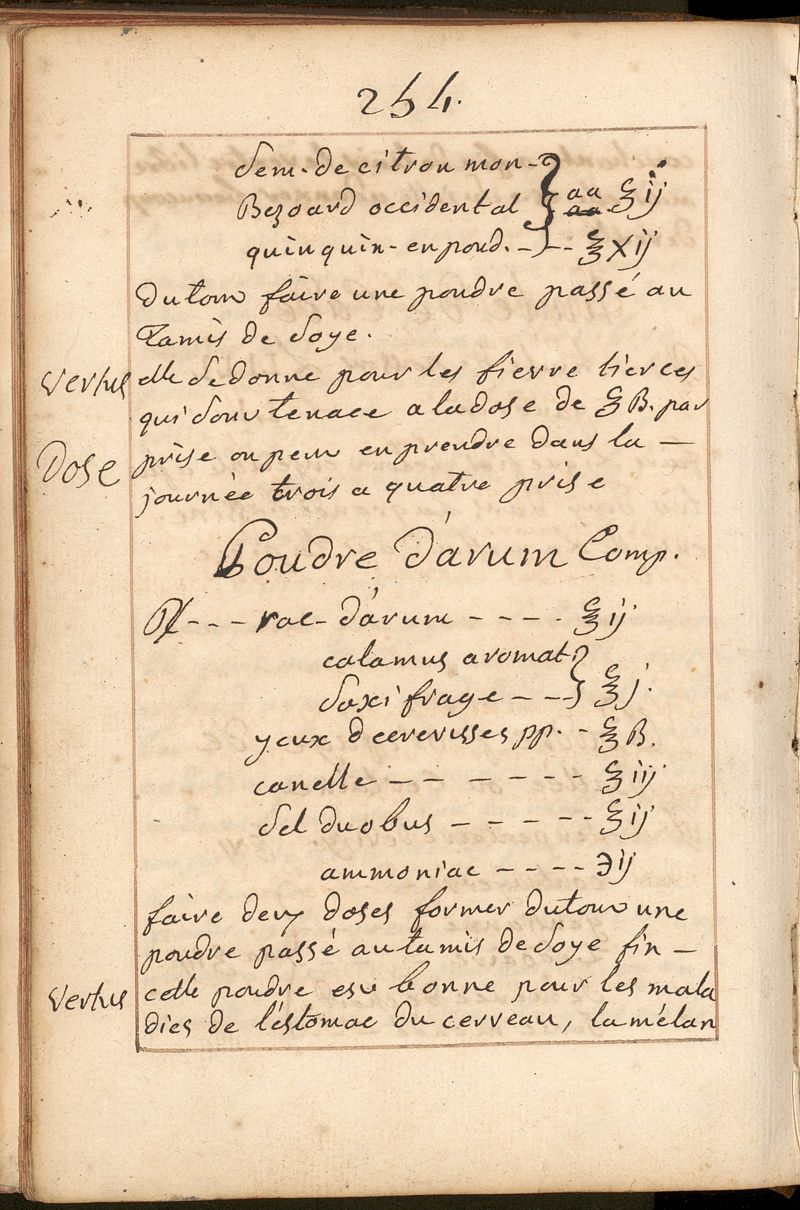 254.
Sem. de citron mon-
Bezoard occidental } aa ℥ ij
quinquin- en poud. - - - ℥ Xij
Dutout faire une poudre passé au
Tamis de Soye.
Vertus elle se donne pour les fievre tierces
qui sont tenace a la dose de ℥ B. par
Dose prise on peut en prendre dans la —
journée trois a quatre prise
Poudre d'arum Comp.
℞ - - - rac- d'arum - - - - . ℥ ij
calamus aromat }
saxifrage - - - } ℥ j.
yeux decrevisses pp. - ℥ B.
canelle - - - - - - ℥ iij
Sel duobus - - - - - ℥ ij
ammoniac - - - - ℈ ij
faire deux doses former dutout une
poudre passé au tamis de Soye fin —
Vertus cette poudre est bonne pour les mala
dies de l'éstomac du cerveau, la mélan